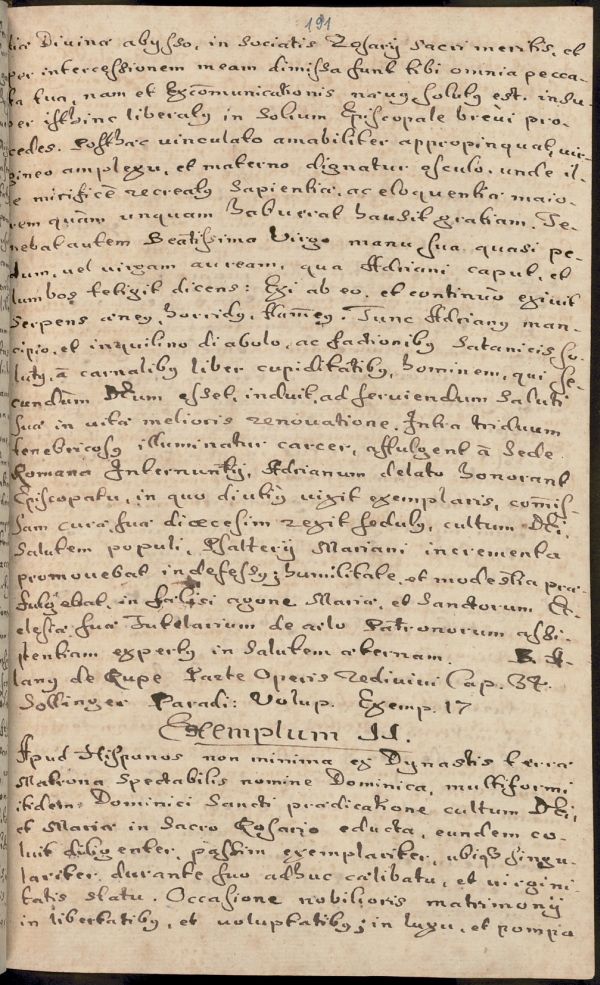 191
tiæ Divinæ abysso, in sociatis Rosarij sacri meritis, et
per intercessionem meam dimissa sunt tibi omnia pecca-
ta tua, nam et Excom̄unicationis nævꝰ solutꝰ est. insu-
per isthinc liberatꝰ in solium Episcopale brevi pro-
cedes. Posthæc vinculato amabiliter appropinquat, vir-
gineo amplexu, et materno dignatur osculo, unde il-
le mirificè recreatꝰ sapientiæ, ac eloquentiæ maio-
rem quàm unquam habuerat hausit gratiam. Te-
nebat autem Beatissima Virgo manu sua quasi pe-
dum, vel virgam auream, qua Adriani caput, et
lumbos tetigit dicens: Exi ab eo. et continuò exivit
serpens æneꝰ, horridꝰ, flam̄eꝰ. Tunc Adrianꝰ man-
cipio, et inquilino diabolo, ac factionibꝰ satanicis so-
lutꝰ, à carnalibꝰ liber cupiditatibꝰ, hominem, qui se-
cundùm Deum esset, induit, ad serviendum saluti
suæ in vitæ melioris renovatione. Intra triduum
tenebricosꝰ illuminatur carcer, affulgent à Sede
Romana Internuntij, Adrianum delato honorant
Episcopatu, in quo diutiꝰ vixit exemplaris, com̄is-
sam curæ suæ diœcesim rexit sedulꝰ, cultum Dei,
salutem populi, Psalterij Mariani incrementa
promovebat indefessꝰ; humilitate, et modestia præ-
fulgebat, in agone Mariæ, et Sanctorum Ec-
clesiæ suæ Tutelarium de cælo Patronorum assi-
stentiam expertꝰ in salutem æternam. B. A-
lanꝰ de Rupe Parte Operis redivivi Cap. 34.
Sollinger Paradi: Volup. Exemp. 17
Exemplum II.
Apud Hispanos non minima ex Dynastis terræ
Matrona spectabilis nomine Dominica, multiformi
itidem Dominici Sancti prædicatione cultum Dei,
et Mariæ in Sacro Rosario educta, eundem co-
luit diligenter, passim exemplariter, ubiqꝫ singu-
lariter durante suo adhuc cælibatu, et virgini-
tatis statu. Occasione nobilioris matrimonij
in libertatibꝰ, et voluptatibꝰ, in luxu, et pompa